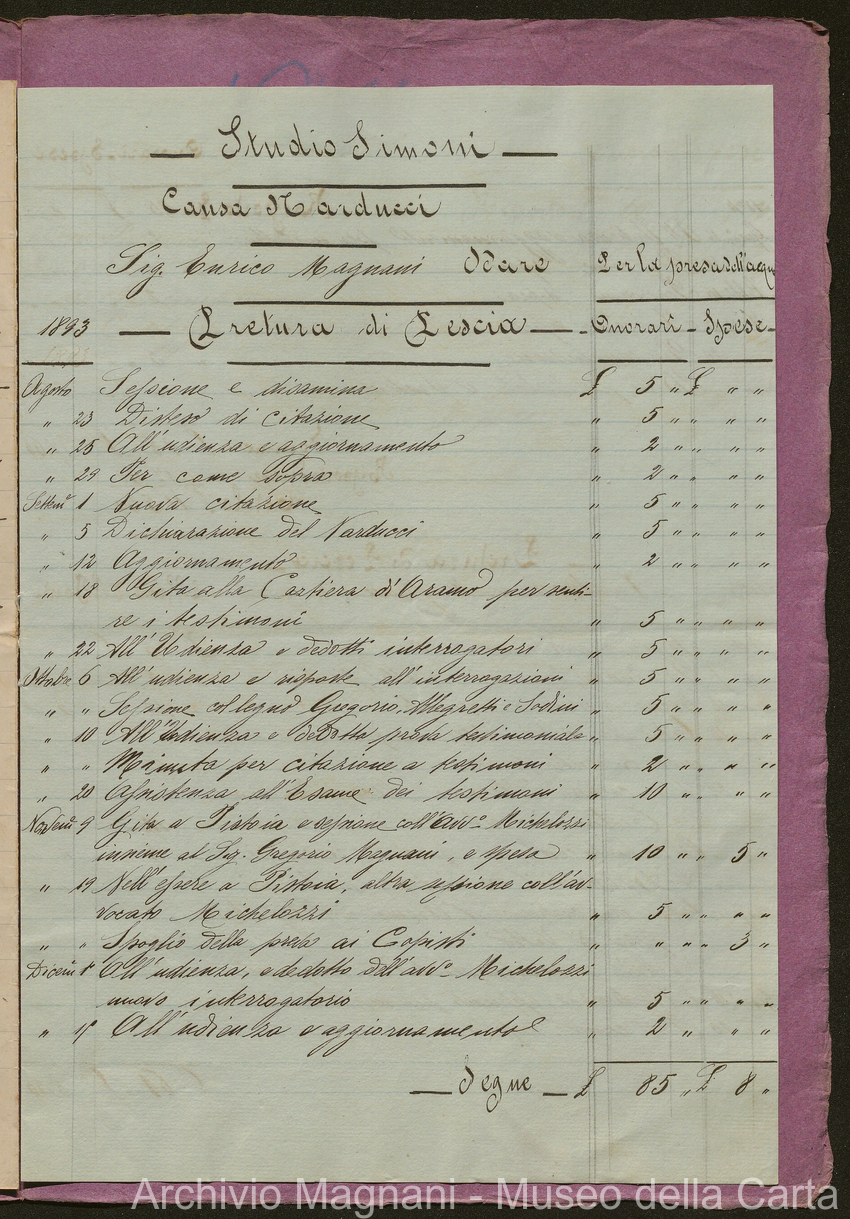 — Studio Simoni —
Causa Narducci
Sig. Enrico Magnani Dare Per la presa dell'acqu
1893 — Pretura di Pescia — - Onorari - Spese -
Agosto Sessione e disamina £ 5 " £ " "
" 23 Disteso di citazione " 5 " " " "
" 25 All'udienza e aggiornamento " 2 " " " "
" 29 Per come sopra " 2 " " " "
Settem 1 Nuova citazione " 5 " " " "
" 5 Dichiarazione del Narducci " 5 " " " "
" 12 Aggiornamento " 2 " " " "
" 18 Gita alla Cartiera di Aramo per senti-
re i testimoni " 5 " " " "
" 22 All'Udienza e dedotti interrogatori " 5 " " " "
Ottobre 6 All'udienza e risposte all'interrogazioni " 5 " " " "
" " Sessione col legno Gregorio, Allegretti e Sodini " 5 " " " "
" 10 All'Udienza e dedotta prova testimoniale " 5 " " " "
" " Minuta per citazione a testimoni " 2 " " " "
" 20 Assistenza all'Esame dei testimoni " 10 " " " "
Novem 9 Gita a Pistoia e sessione coll'avvo Michelozzi
insieme al Sig. Gregorio Magnani, e spesa " 10 " " 5 "
" 19 Nell'essere a Pistoia, altra sessione coll'av-
vocato Michelozzi " 5 " " " "
" " Spoglio della ai Copisti " " " " 3 "
Dicem 1° All'udienza, e dedotto dall'avvo Michelozzi
nuovo interrogatorio " 5 " " " "
" 15 All'udienza e aggiornamento " 2 " " " "
— Segue — £ 85 " £ 8 "
Archivio Magnani - Museo della Carta